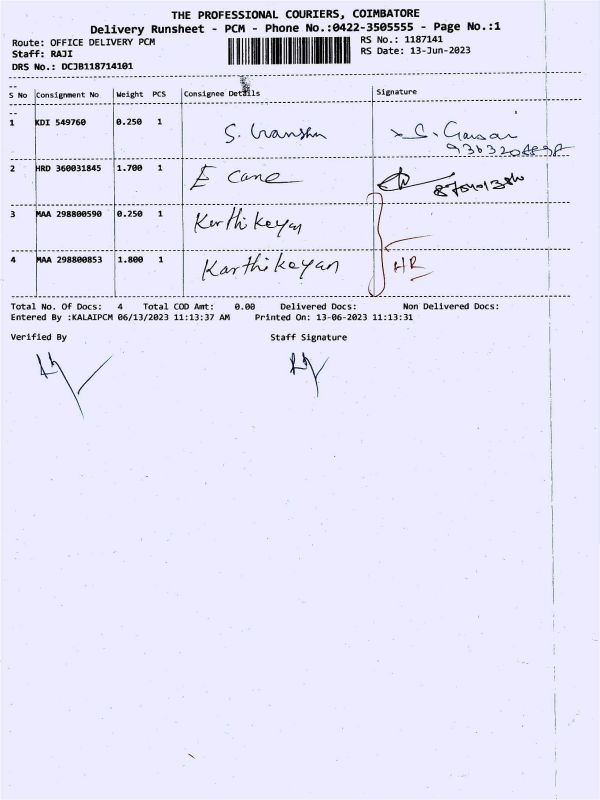 THE PROFESSIONAL COURIERS, COIMBATORE
Delivery Runsheet - PCM - Phone No.:0422-3505555 - Page No.:1
Route: OFFICE DELIVERY PCM
RS No.: 1187141
Staff: RAJI
RS Date: 13-Jun-2023
DRS No.: DCJB118714101
S No Consignment No Weight PCS Consignee Details Signature
1 KDI 549760 0.250 1 S.
2 HRD 360031845 1.700 1 E cane
3 MAA 298800590 0.250 1 Karthikeyan
4 MAA 298800853 1.800 1 Karthikeyan HR
Total No. Of Docs: 4 Total COD Amt: 0.00 Delivered Docs: Non Delivered Docs:
Entered By :KALAIPCM 06/13/2023 11:13:37 AM Printed On: 13-06-2023 11:13:31
Verified By Staff Signature